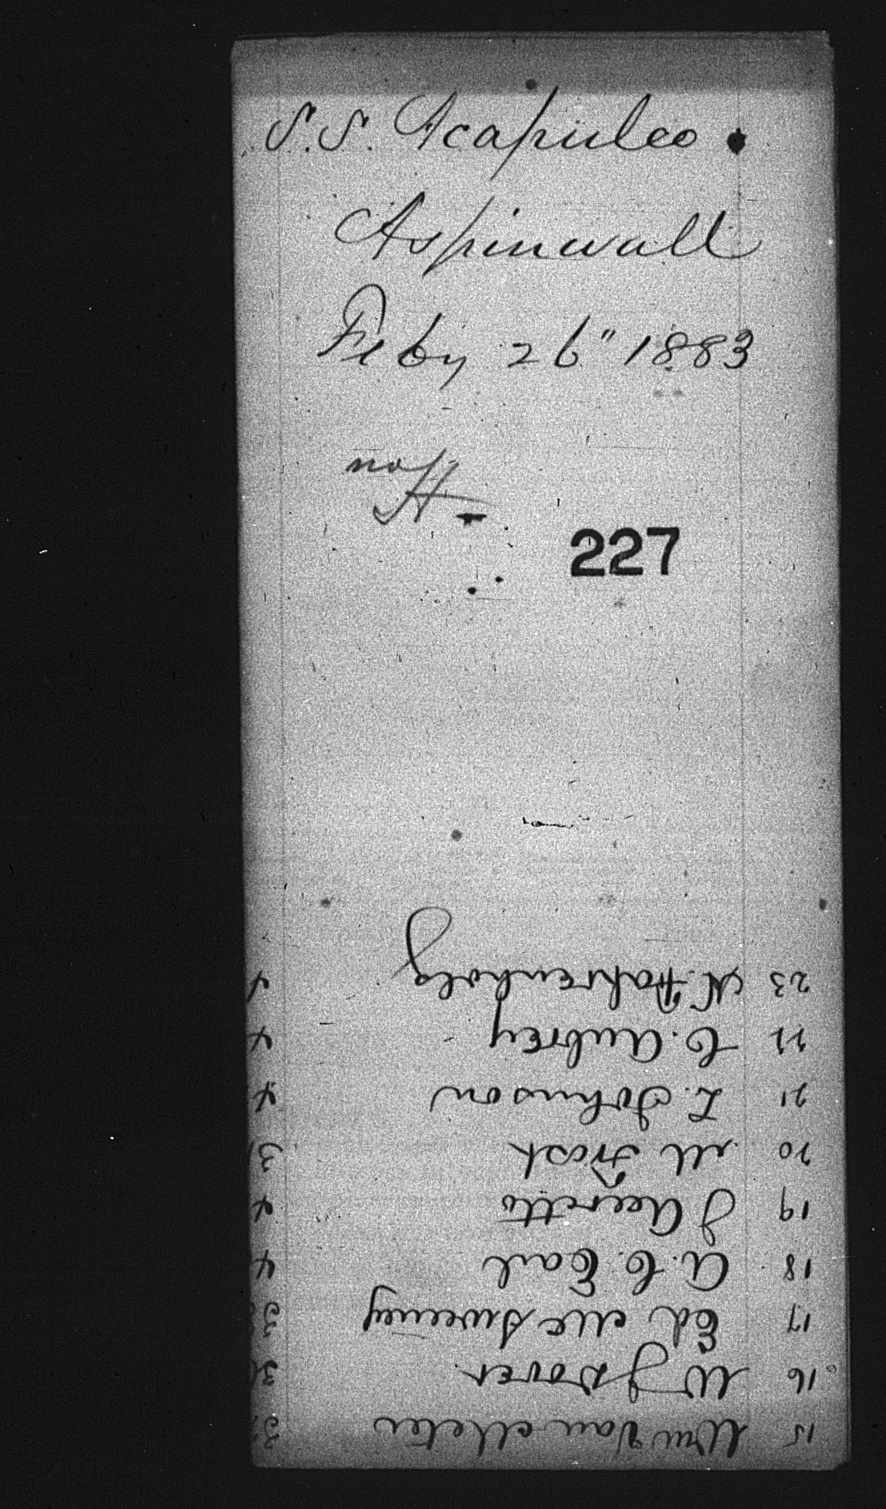 S.S. Acapulco.
Aspinwall
Feby 26" 1883
no
H-
227
15 Wm Van Meter 3
16 W J Dover 3
17 Ed McSweeney 3
18 A. C. Earl 4
19 J Accretto 4
20 M Frost 3
21 L. Johnson 4
22 C. Aubrey 4
23 N. Fahrenholz 4